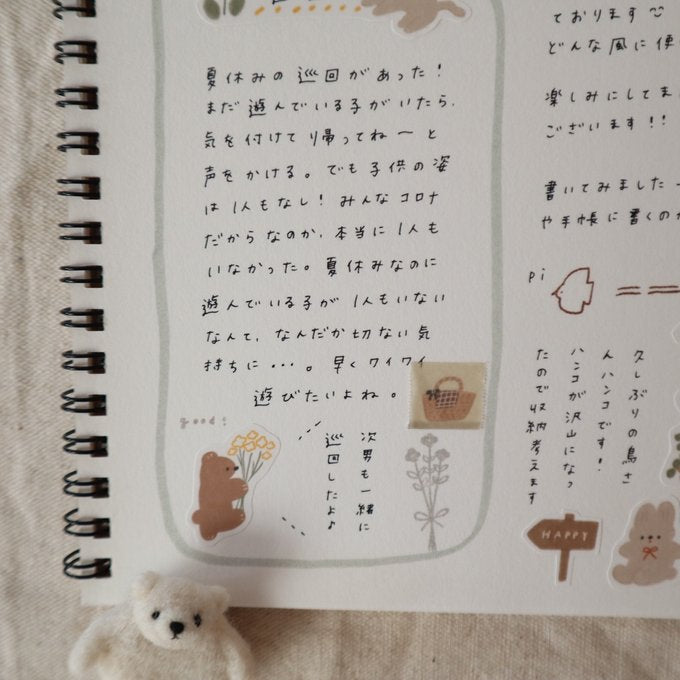 夏休みの巡回があった!
まだ遊んでいる子がいたら、
気を付けて帰ってね〜と
声をかける。でも子供の姿
は1人もなし!みんなコロナ
だからなのか、本当に1人も
いなかった。夏休みなのに
遊んでいる子が1人もいない
なんて、なんだか切ない気
持ちに・・・。早くワイワイ
遊びたいよね。
good!
次男も一緒に
巡回したよ♪
ております
どんな風に便
楽しみにしてま
ございます!!
書いてみました
や手帳に書くのか
pi
久しぶりの鳥さ
んハンコです!
ハンコが沢山になっ
たので収納考えます
HAPPY